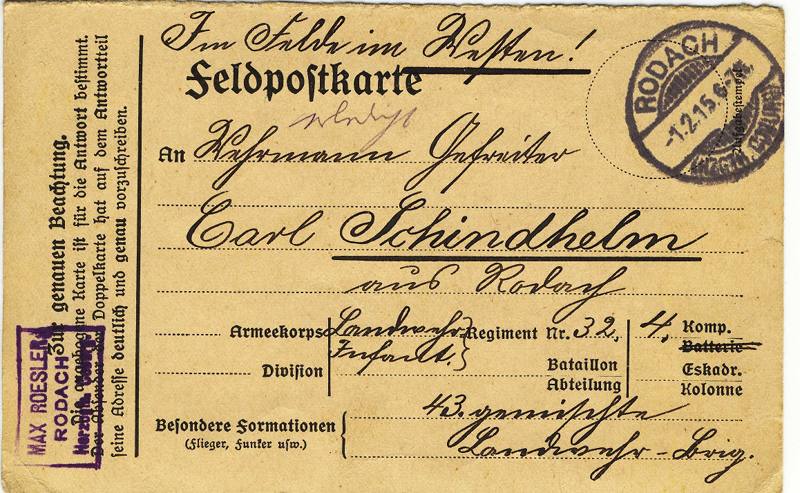 Im Felde im Westen!
Feldpostkarte
RODACH
-1.2.15.6-7N.
(HZGTM. COBURG)
Aufgabestempel
erledigt
An Wehrmann Gefreiter
Carl Schindhelm
aus Rodach
Armeekorps Landwehr Regiment Nr. 32, 4, Komp.
Infant. Batterie
Division Bataillon Eskadr.
Abteilung Kolonne
Besondere Formationen 43. gemischte
(Flieger, Funker usw.) Landwehr-Brig.
Zur genauen Beachtung.
Die angebogene Karte ist für die Antwort bestimmt.
Der Absender der Doppelkarte hat auf dem Antwortteil
seine Adresse deutlich und genau vorzuschreiben.
MAX ROESLER
RODACH
Herzogth. Coburg